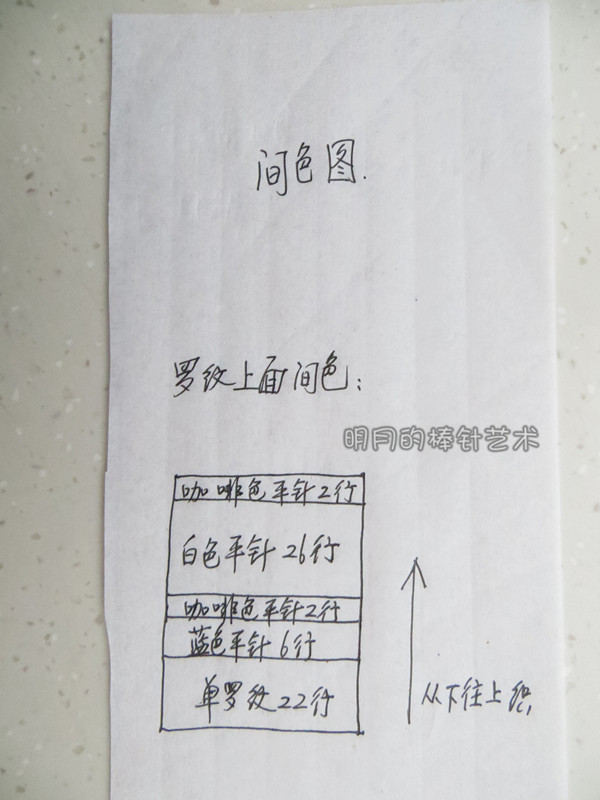 间色图.
罗纹上面间色:
明月的棒针艺术
咖啡色平针2行
白色平针26行
咖啡色平针2行
蓝色平针6行
单罗纹22行
从下往上织